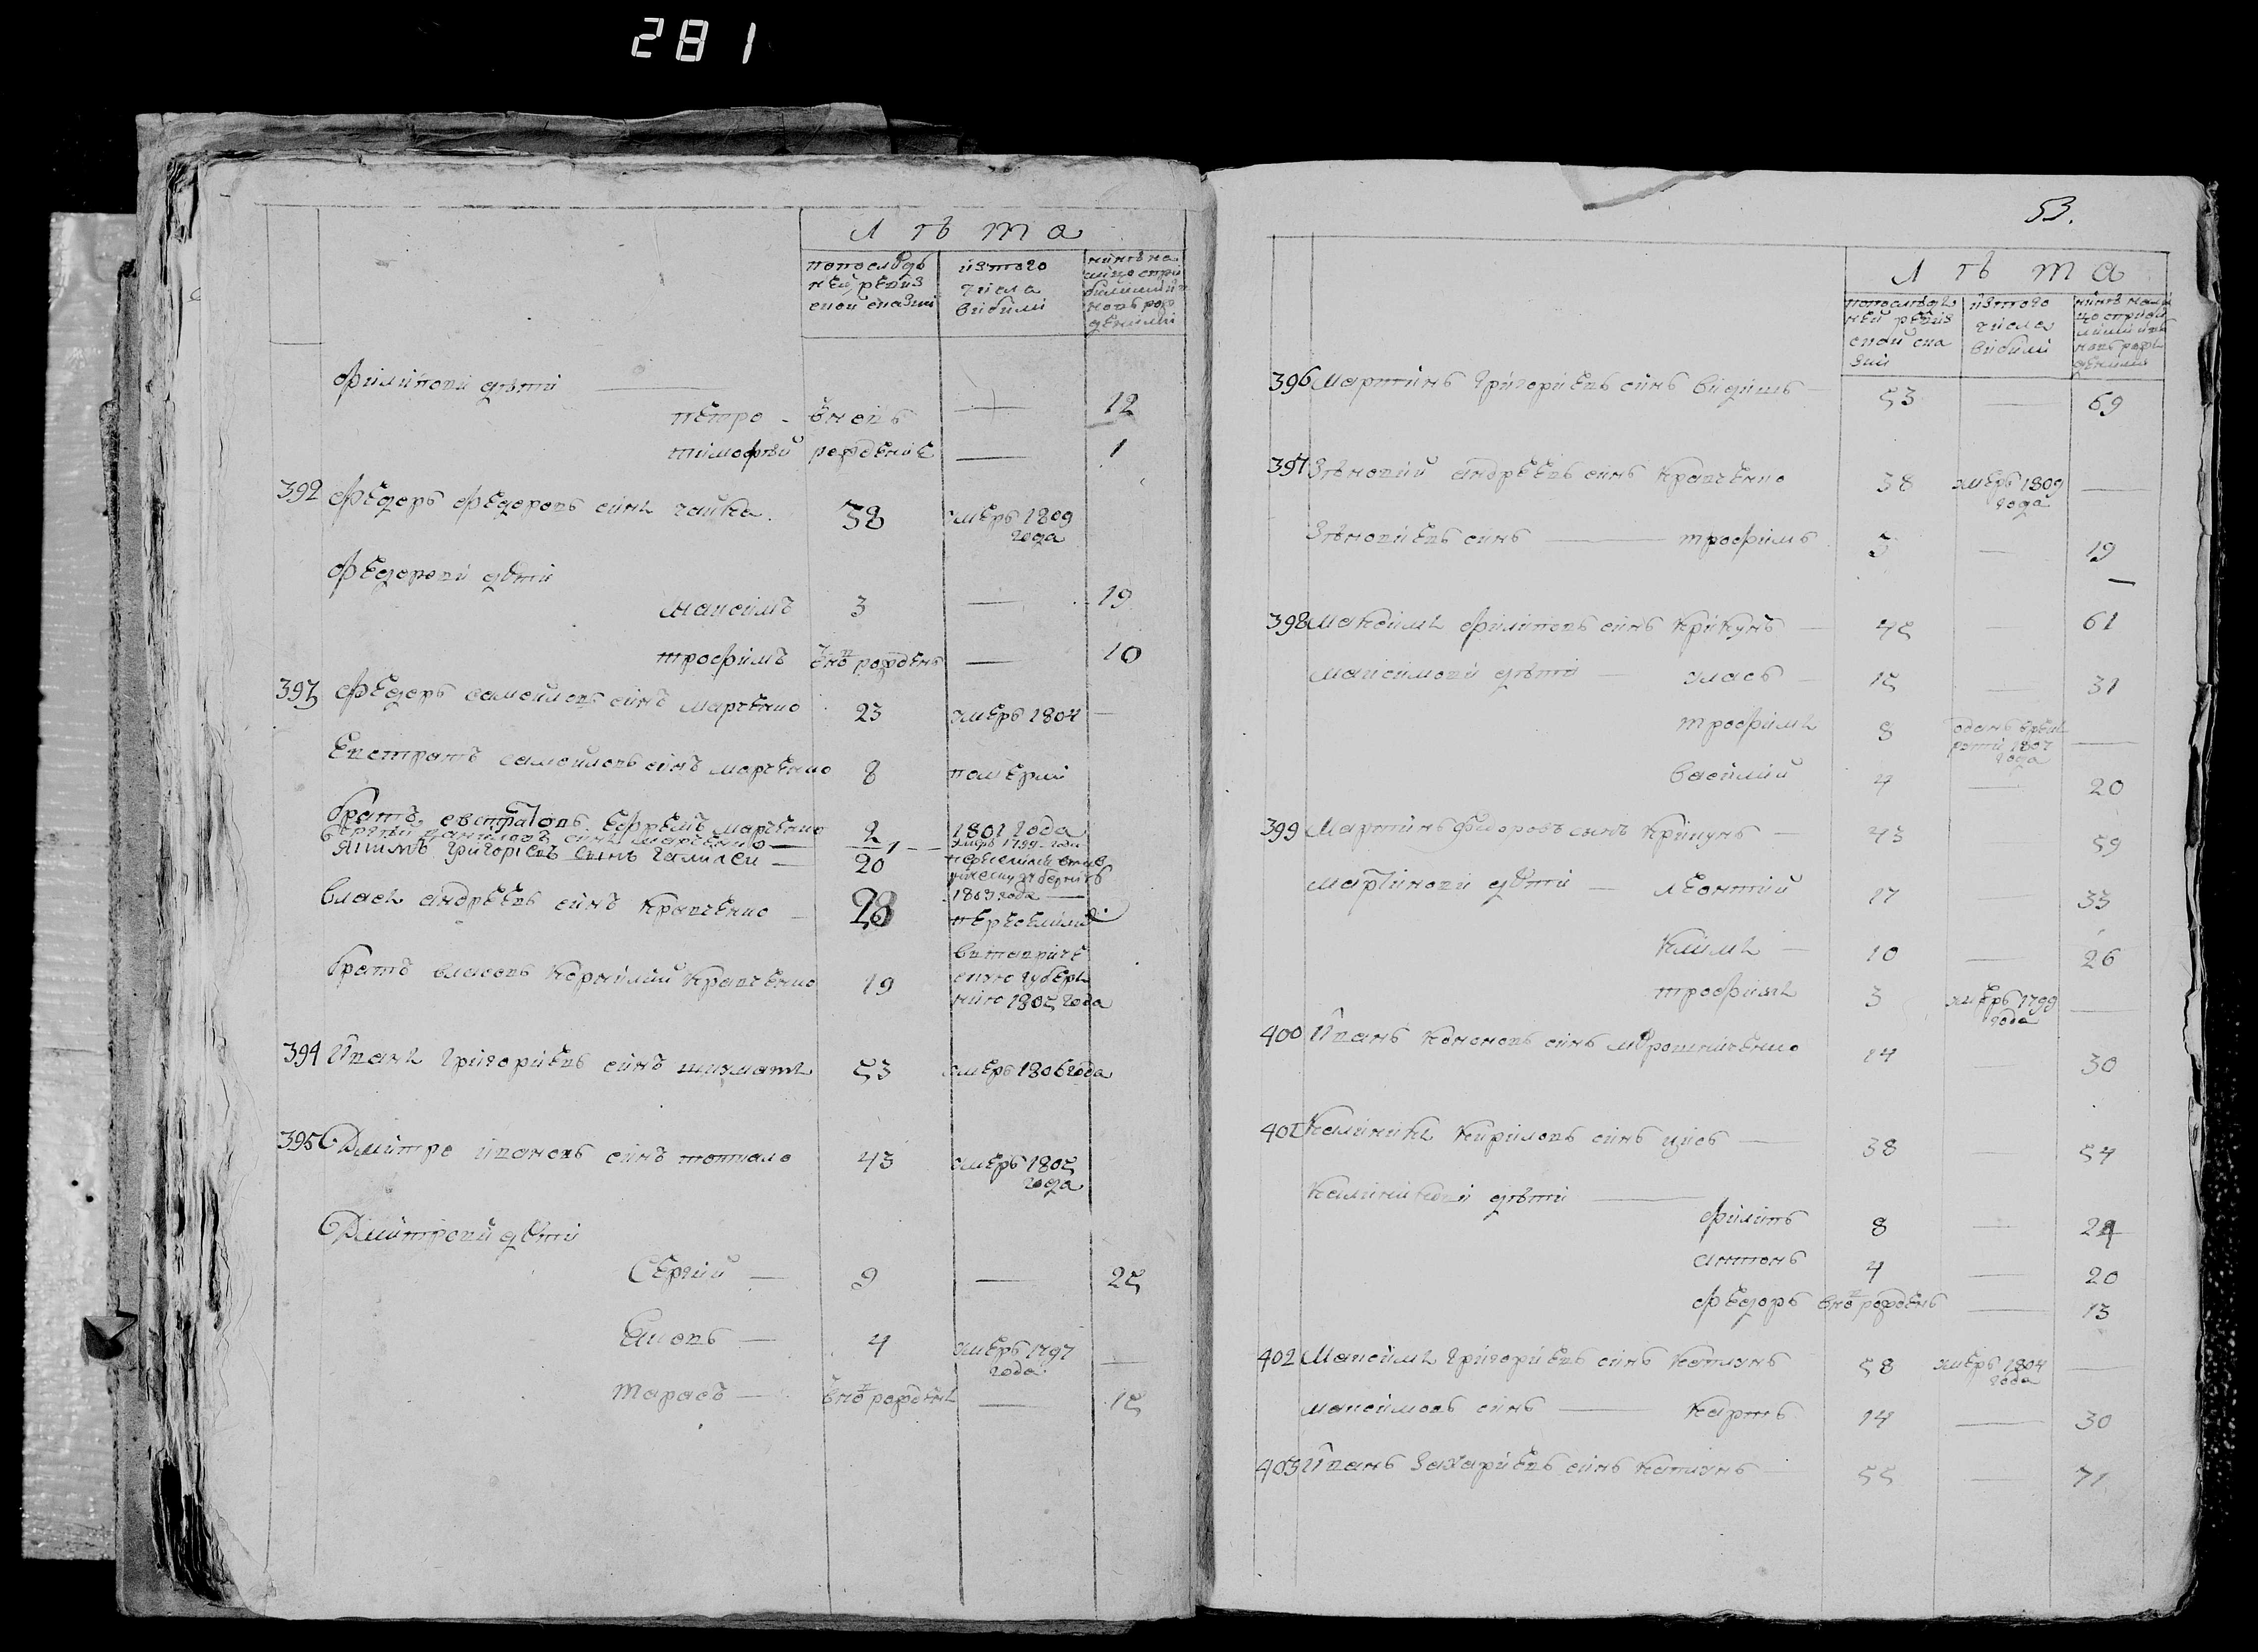 281
Лѣта
попослѣдь
ней ревиз
ской сказки
изтого
числа
вибили
нинѣ на
лицо спри
билими и
новь рож
деними
Филиповы дѣти
петро вновь — 12
тимофѣй рожденіе — 1
392 Федоръ Федоровъ синъ чайка 38 умеръ 1809
года
Федорови дѣти
максимъ 3 — 19
трофимъ внов рожденъ — 10
393 Федоръ самойловъ синъ марченко 23 умеръ 1804 —
Евстратъ самойловъ синъ марченко 8 померли
братъ евстратовъ Ефремъ марченко 2 1801 года
Сергѣй даниловъ синъ марченко 1 умеръ 1799 года
Якимъ григорієвъ синъ галилей — 20
1803 года
власъ андрѣевъ синъ кравченко — 28 переселились
братъ власовъ корнилий кравченко 19
втавриче
скую губерь
нию 1805 года
394 Иванъ григориевъ синъ шкматъ 53 умеръ 1806 года
395 Дмитро ивановъ синъ топтало 43 умеръ 1805
года
Дмитрови дѣти
Сергий — 9 — 25
Яковъ — 4 умеръ 1797
года —
тарасъ — внов рожденъ — 15
53.
Лѣта
попослѣдь
ней ревиз
ской ска
зки
изтого
числа
вибили
нинѣ нали
цо сприби
лими и
новь рож
деними
396 Мартинъ григориевъ синъ видишъ 53 — 69
397 Зѣновий андрѣевъ синъ кравченко 38 умеръ 1809
года —
Зѣновиевъ синъ — трофимъ 3 — 19
398 Максимъ филиповъ синъ крикунъ — 45 61
максимови дѣти — уласъ — 15 — 31
трофимъ 8 оданъ врек
рути 1807
года —
василий 4 — 20
399 Мартинъ федоровъ сынъ крикунъ — 43 — 59
мартинови дѣти — леонтий 17 — 33
климъ — 10 — 26
трофимъ 3 умеръ 1799
года —
400 Иванъ кононовъ синъ мѣрошниченко 14 — 30
401 Калиникъ кириловъ синъ цисъ — 38 — 54
калиникови дѣти —
филипъ 8 — 24
антонъ 4 — 20
федоръ внов рожденъ — 13
402 Максимъ григориевъ синъ каплунъ 58 умеръ 1804
года —
максимовъ синъ — карпъ 14 — 30
403 Иванъ захариевъ синъ каплунъ 55 — 71